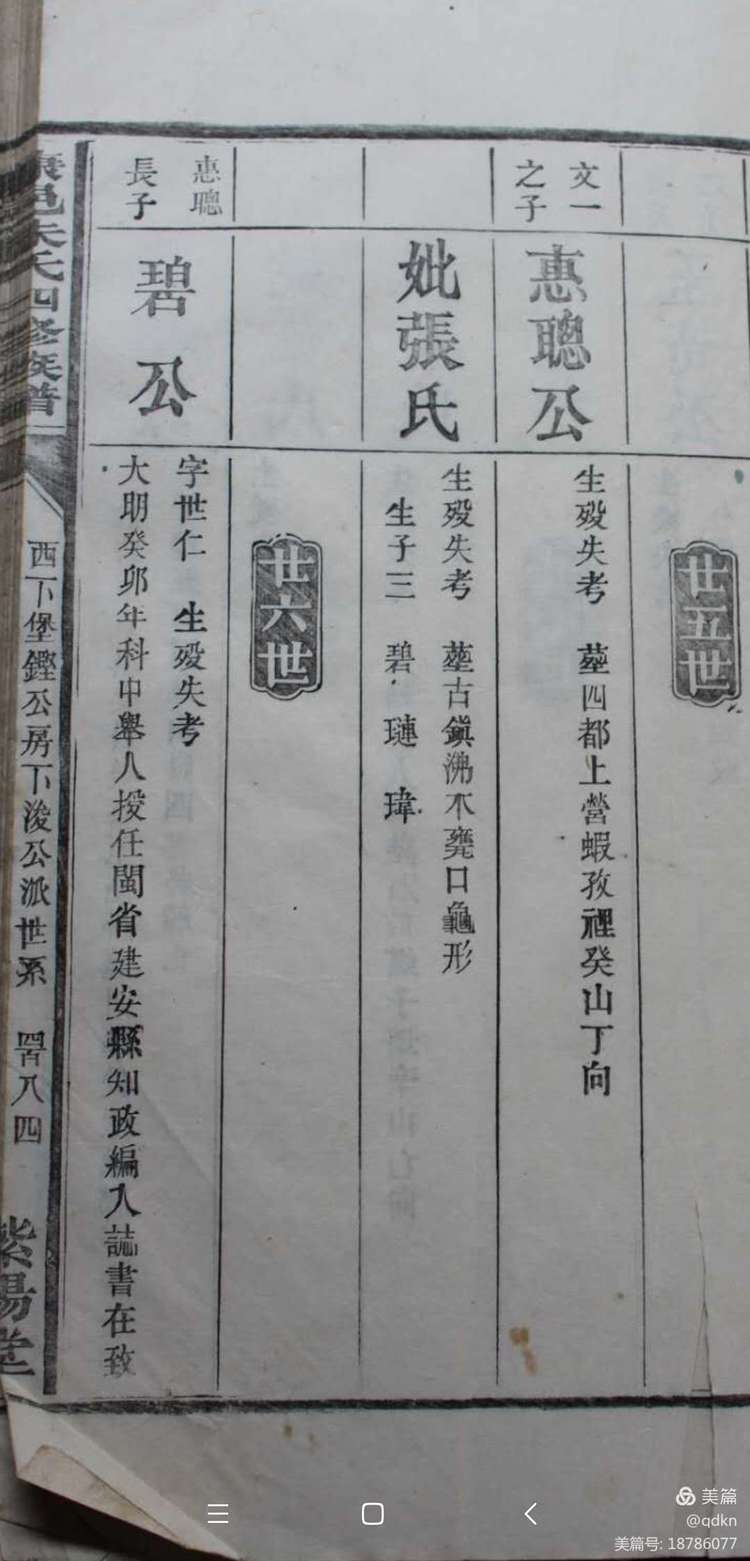 廿五世
文一
之子
惠聰公
生殁失考　塟四都上營蝦孜裡癸山丁向
妣張氏
生殁失考　塟古鎮沸水甕口龜形
生子三　碧　璉　瑋
廿六世
惠聰
長子
碧公
字世仁　生殁失考
大明癸卯年科中舉人授任閩省建安縣知政編入誌書在致
康邑朱氏四修族譜
西下堡鏗公房下浚公派世系　四百八四
紫陽堂
美篇
@qdkn
美篇号: 18786077